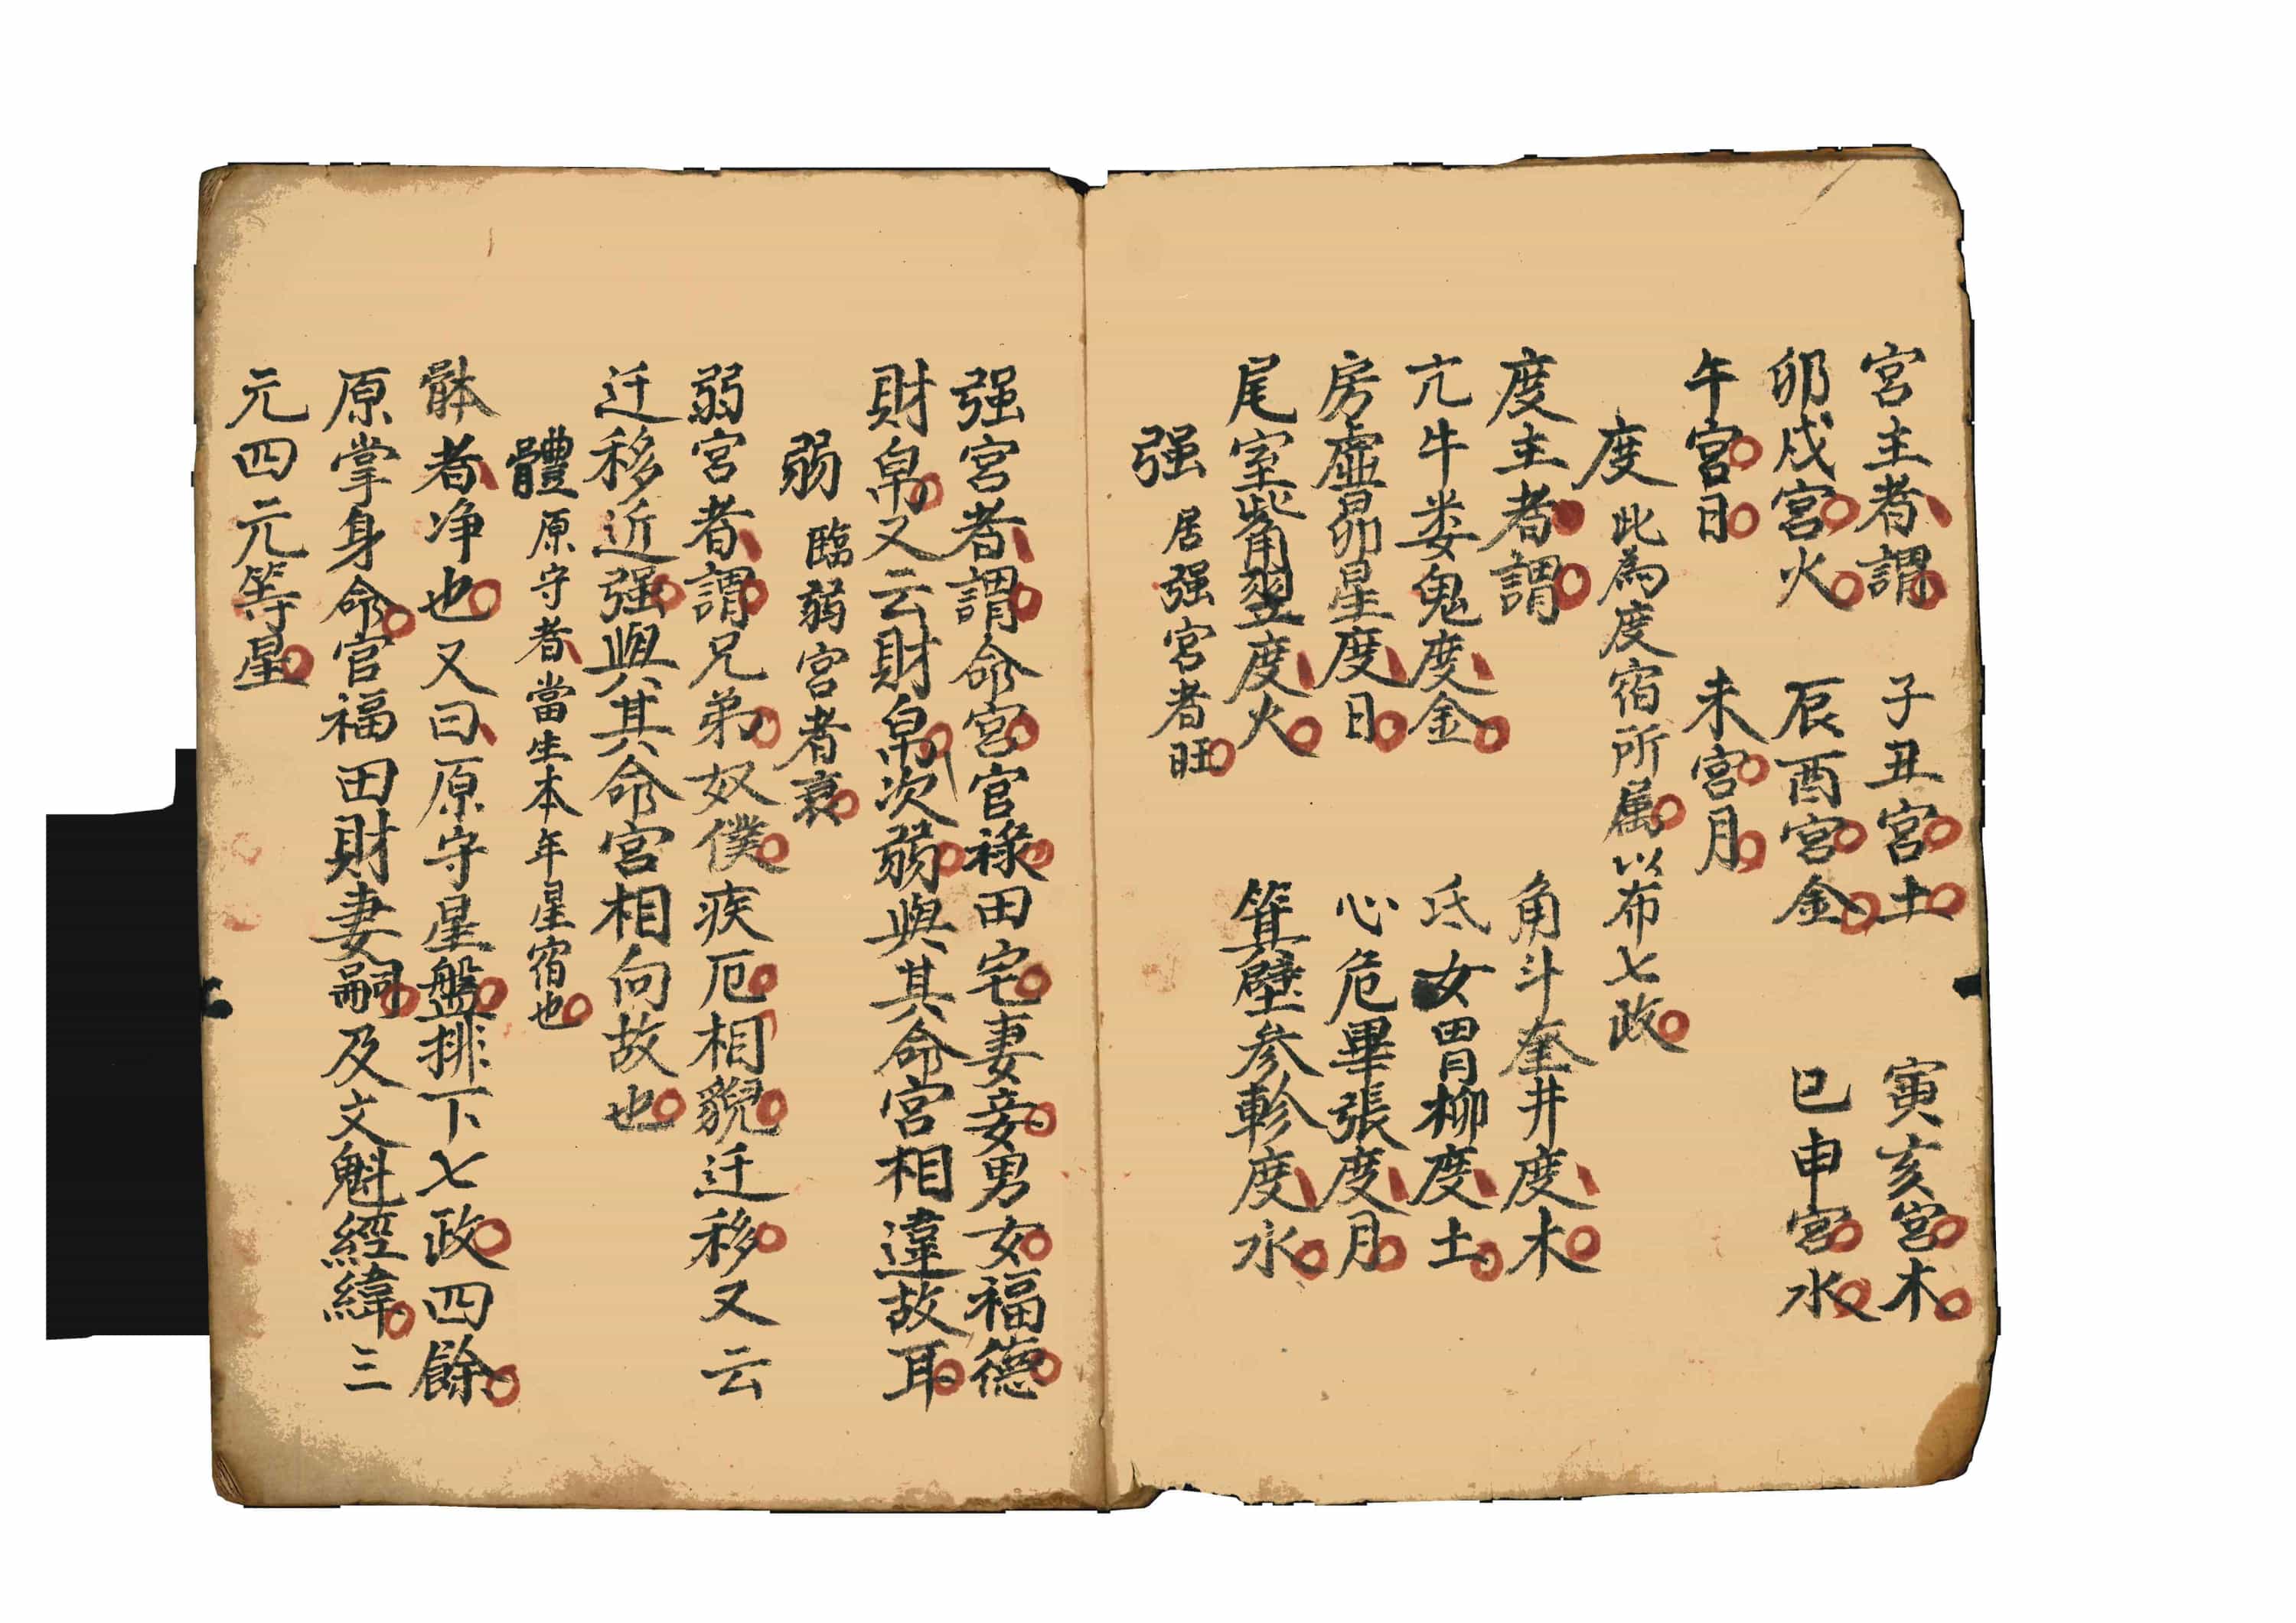 宮主者謂　子丑宮土　寅亥宮木
卯戌宮火　辰酉宮金　巳申宮水
午宮日　未宮月
度　此為度宿所属以布七政
度主者謂　角斗奎井度木
亢牛娄鬼度金　氐女胃柳度土
房虛昴星度日　心危畢張度月
尾室觜翌度火　箕壁参軫度水
强　居强宮者旺
强宮者謂命宮官祿田宅妻妾男女福德
財帛又云財帛次弱與其命宮相違故耳
弱　臨弱宮者衰
弱宮者謂兄弟奴僕疾厄相貌迁移又云
迁移近强與其命宮相向故也
體　原守者當生本年星宿也
骵者净也又曰原守星盤排下七政四餘
原掌身命官福田財妻嗣及文魁經緯三
元四元等星